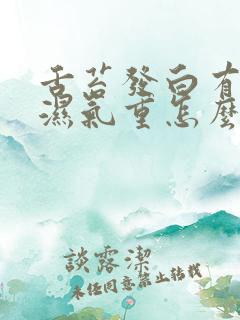 舌苔發白有
濕氣重怎麼
談露潔
未经同意禁止转载